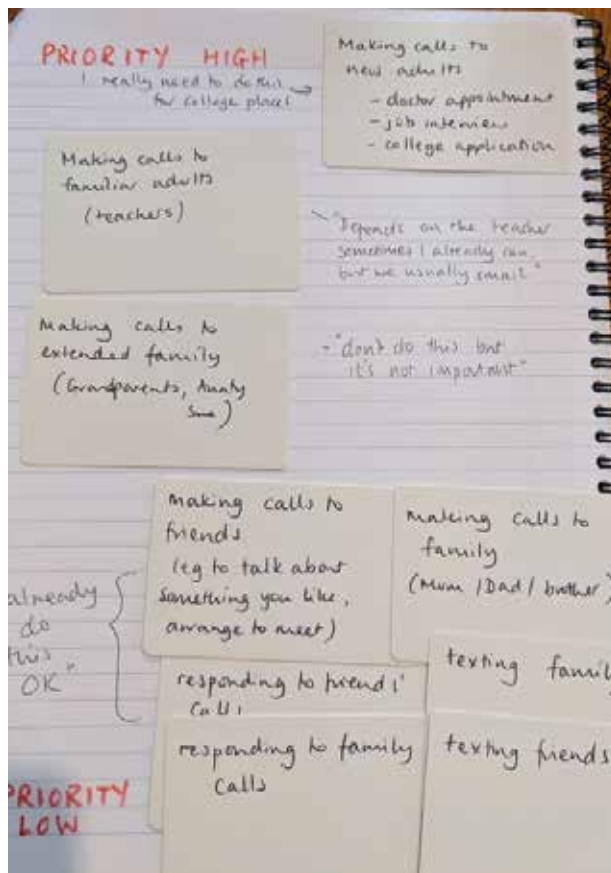 PRIORITY HIGH
I really need to do this
for college place!
Making calls to
new adults
- doctor appointment
- job interview
- college application
Making calls to
familiar adults
(teachers)
"Depends on the teacher
sometimes I already can
but we usually email"
Making calls to
extended family
(Grandparents, Aunty
"don't do this but
it's not important"
making calls to
friends
(eg to talk about
something you like,
arrange to meet)
making calls to
family
(Mum / Dad / brother)
already
do
this
OK"
responding to friends'
calls
texting famil
responding to family
calls
texting friends
PRIORITY
LOW